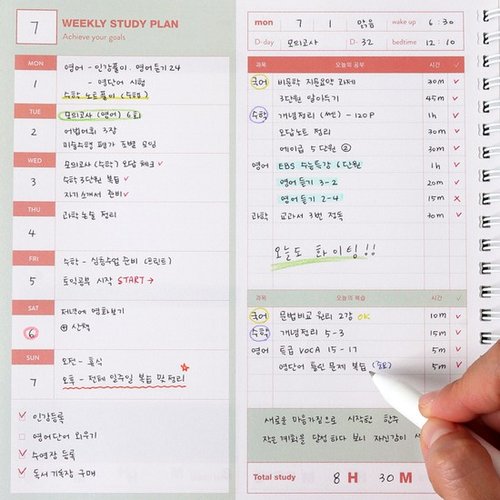 7
WEEKLY STUDY PLAN
Achieve your goals
MON
1
영어 - 인강풀이. 영어듣기 24
- 영단어 시험
수학 노트풀이 (수행)
TUE
2
모의고사 (영어) 6회
어법어휘 3장
미술수행평가 조별모임
WED
3
모의고사 (수학) 오답 체크 ✓
수학 3단원 복습 ✓
자기소개서 준비 ✓
THU
4
과학 노트 정리
FRI
5
수학 - 심층수업 준비 (프린트)
토익공부 시작 START →
SAT
6
저녁에 영화보기
산책
SUN
7
오전 - 휴식
오후 - 전체 일주일 복습 및 정리
✓ 인강등록
영어단어 외우기
✓ 수영장 등록
✓ 독서 기록장 구매
mon 7 1 맑음 wake up 6:30
D-day 모의고사 D-32 bedtime 12:10
과목 오늘의 공부 시간 ✓
국어 비문학 지문요약 과제 30m ✓
3단원 알아두기 45m ✓
수학 개념정리 (쎈) - 120P 1h ✓
오답노트 정리 30m ✓
5단원 ② 30m ✓
영어 EBS 수능특강 6단원 1h ✓
영어듣기 3-2 20m ✓
영어듣기 2-4 15m ×
과학 교과서 3번 정독 70m ✓
오늘도 화이팅!!
과목 오늘의 복습 시간 ✓
국어 문법비교 원리 2강 OK 10m ✓
수학 개념정리 5-3 15m ✓
영어 특급 VOCA 15-17 5m ✓
영단어 틀린 문제 복습 (중요) 5m
5m
새로운 마음가짐으로 시작한 한주
작은계획을 달성하다 보니 자신감이
Total study 8 H 30 M